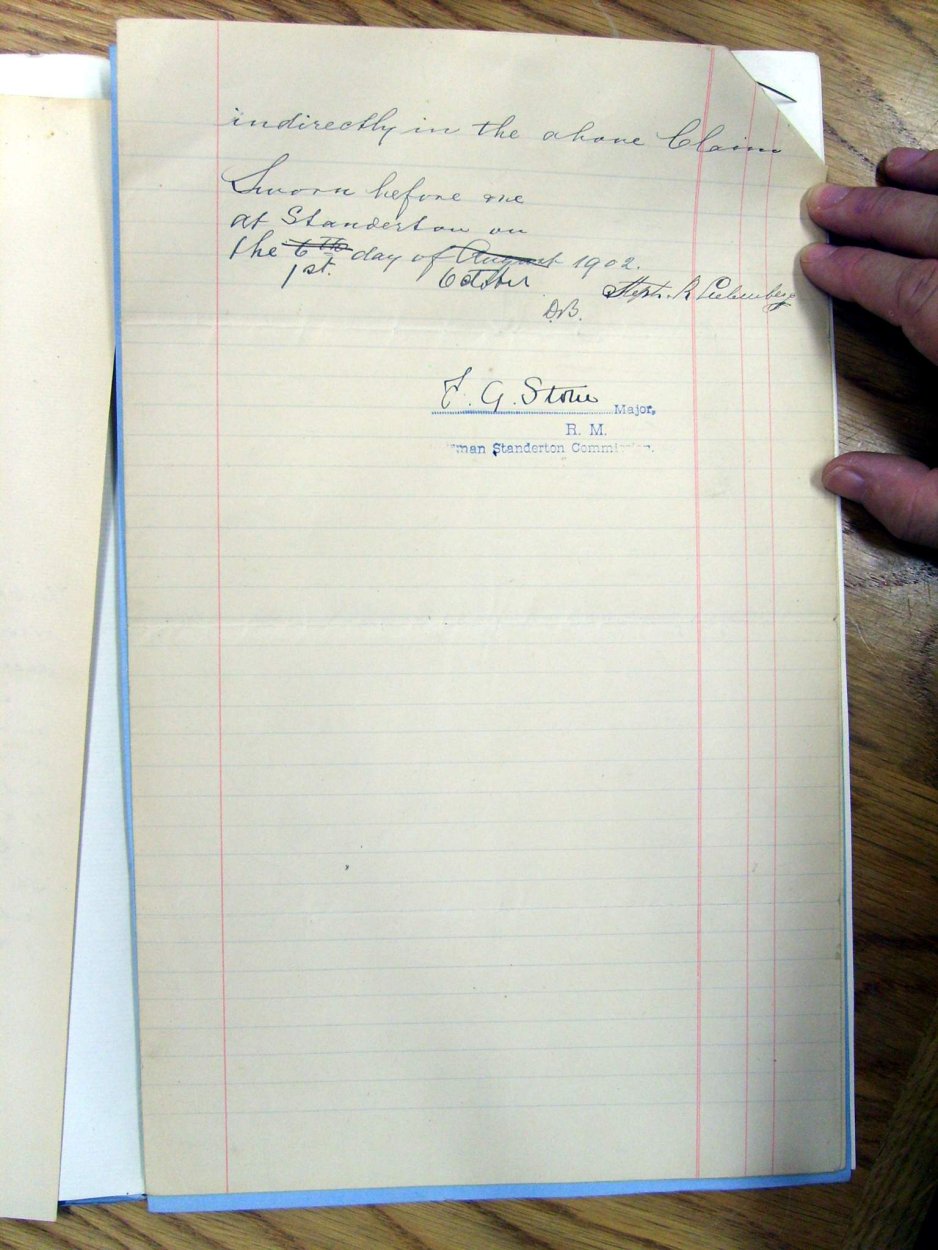 indirectly in the above Claim
Sworn before me
at Standerton on
the 6th day of August 1902.
1st. October
D.B. Steph. R Liebenberg
F. G. Stone Major,
R. M.
man Standerton Commission.